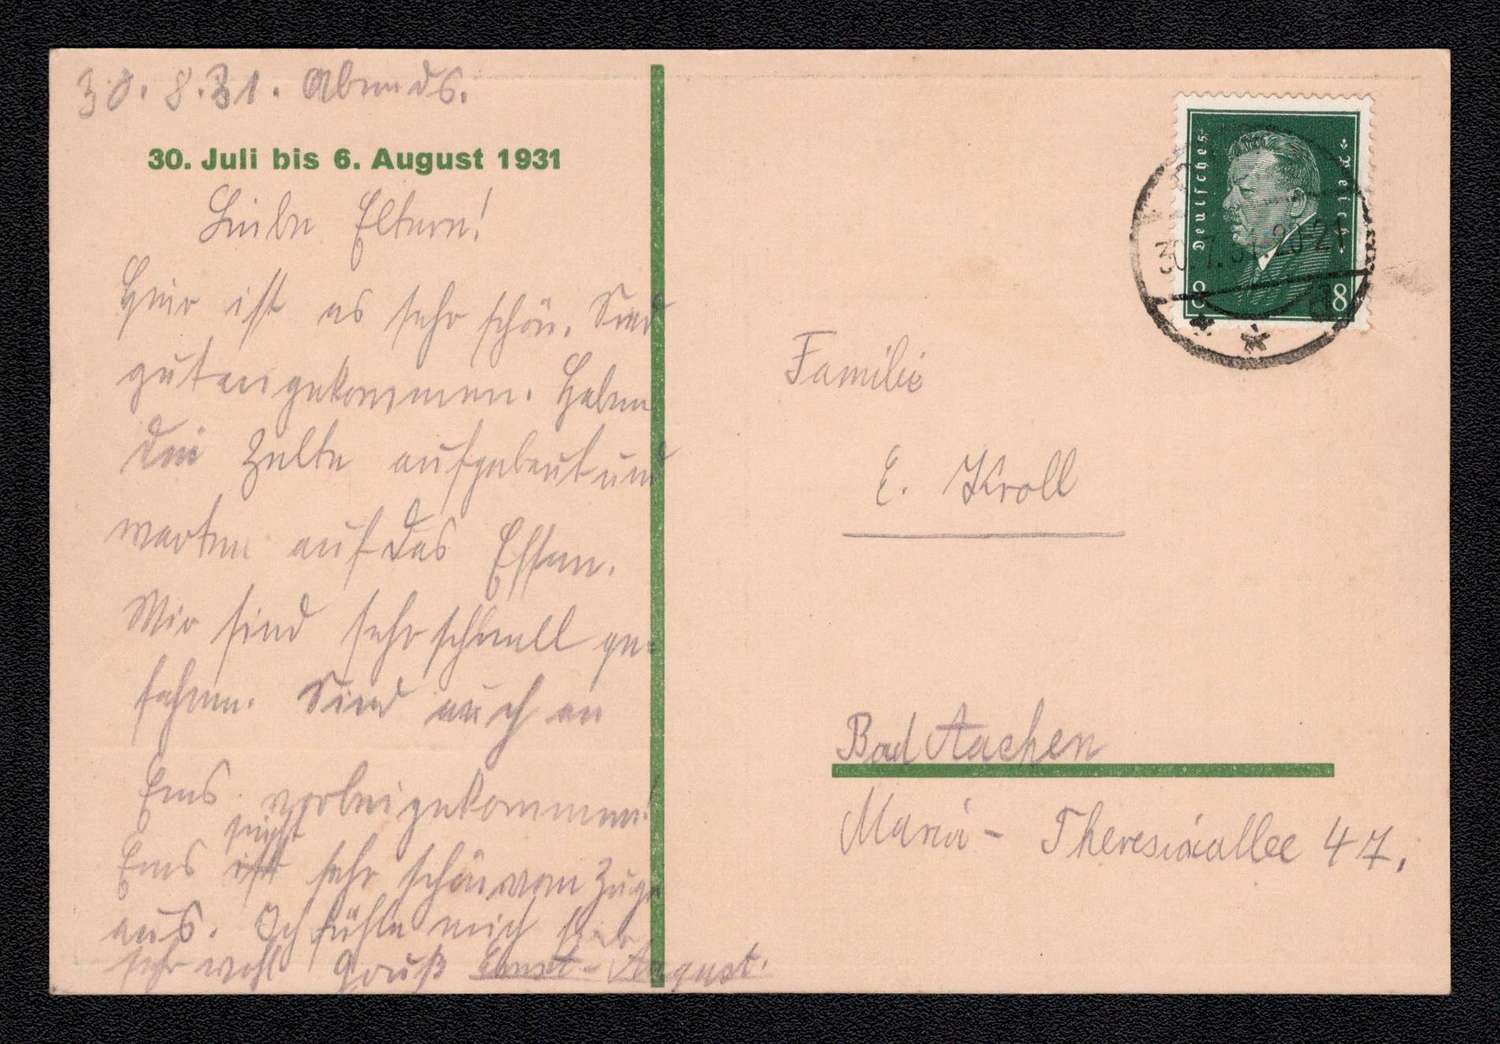 30.8.31. Abends.
30. Juli bis 6. August 1931
Liebe Eltern!
Hier ist es sehr schön. Sind
gut angekommen. Haben
die Zelte aufgebaut und
warten auf das Essen.
Wir sind sehr schnell ge-
fahren. Sind auch an
Ems vorbeigekommen!
Ems sieht sehr schön vom Zuge
aus. Ich fühle mich
sehr wohl Gruß Ernst-August.
Deutsches Reich
8 8
30.7.31.20-21
Familie
E. Kroll
Bad Aachen
Maria-Theresiaallee 47.